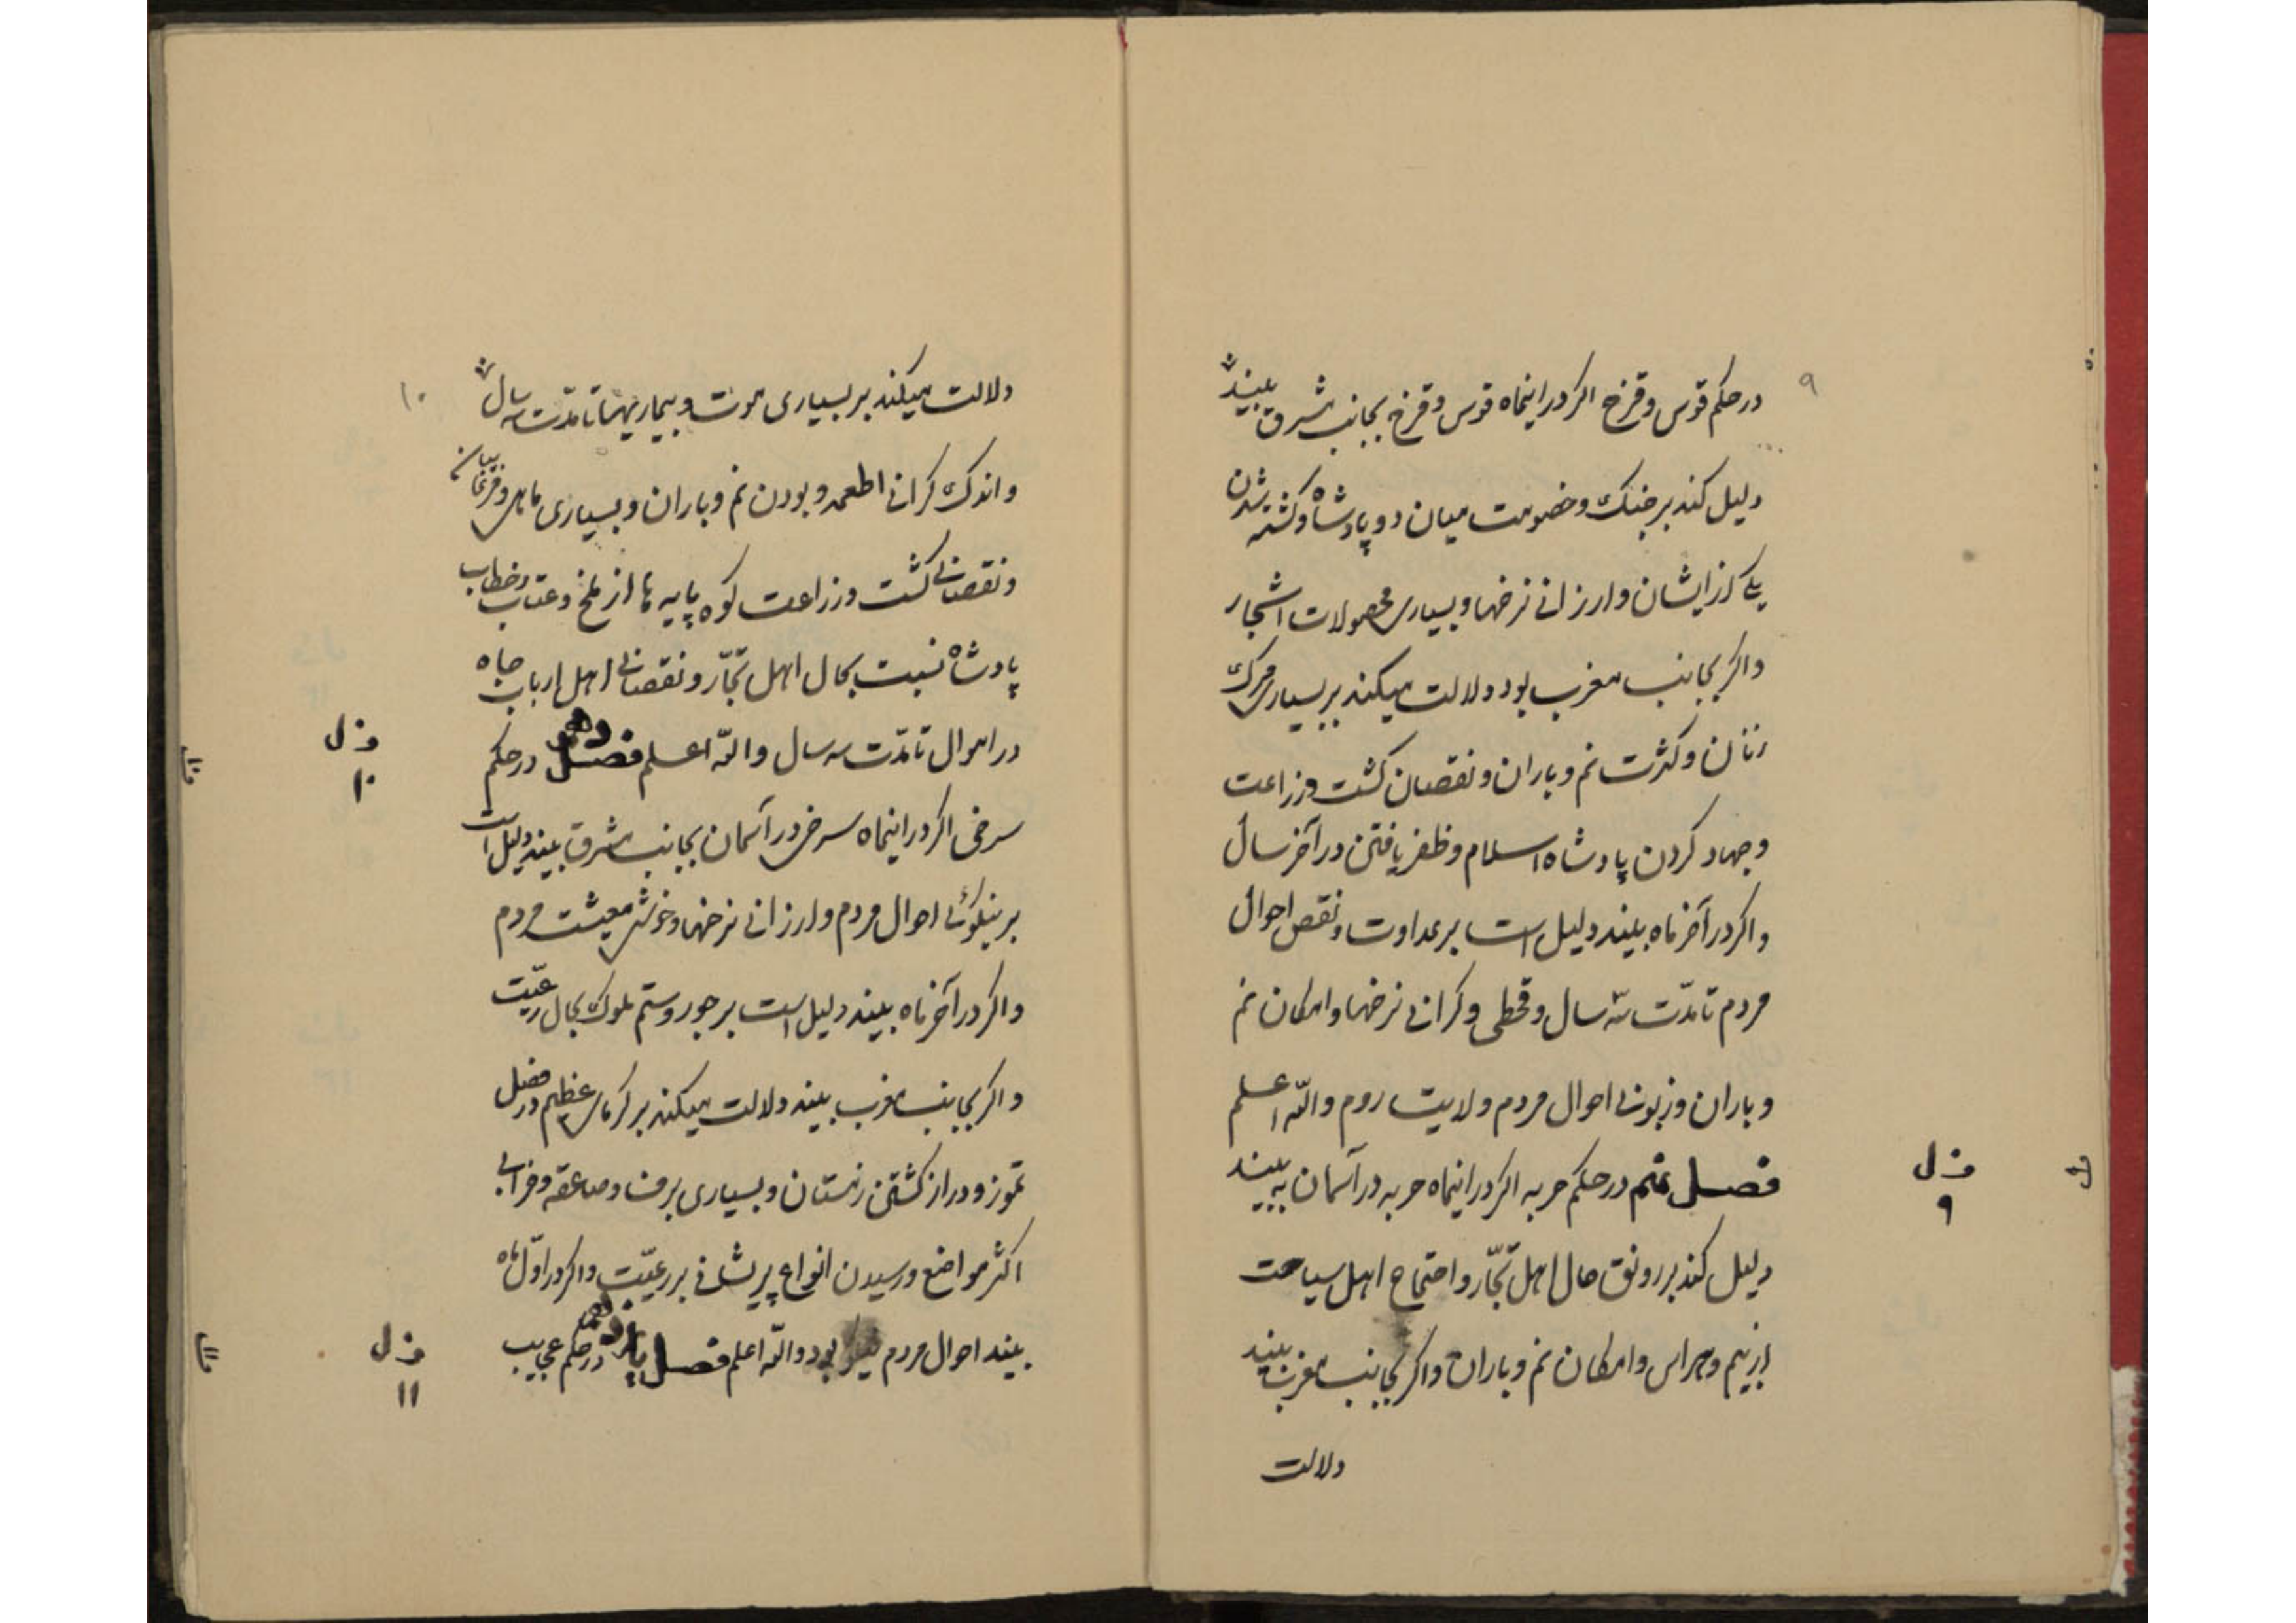 ۹
در حکم قوس و قزح اکر در اینماه قوس و قزح بجانب مشرق بینند
دلیل کند بر جنک و خصومت میان دو پادشاه و کشته شدن
یکی از ایشان و ارزانی نرخها و بسیاری محصولات اشجار
و اکر بجانب مغرب بود دلالت میکند بر بسیاری مرک
زنان و کثرت نم و باران و نقصان کشت و زراعت
و جهاد کردن پادشاه اسلام و ظفر یافتن در آخر سال
و اکر در آخر ماه بیند دلیل است بر عداوت و نقص احوال
مردم تا مدّت سه سال و قحطی و کرانی نرخها و امکان نم
و باران و زبونی احوال مردم ولایت روم و اللّه اعلم
فصل نهم در حکم حربه اکر در اینماه حربه در آسمان به بیند
دلیل کند بر رونق حال اهل تجّار و احتیاج اهل سیاحت
از بیم و هراس و امکان نم و باران و اکر بجانب مغرب بیند
دلالت
ف ل
۹
۱۰
دلالت میکند بر بسیاری موت و بیماریها تا مدّت سه سال
و اندک کرانی اطعمه و بودن نم و باران و بسیاری ماهی و مرغان
و نقصانی کشت و زراعت کوه پایه ها از ملخ و عتاب و خطاب
پادشاه نسبت بحال اهل تجّار و نقصانی اهل ارباب جاه
در اموال تا مدّت سه سال و اللّه اعلم فصل دهم در حکم
سرخی اکر در اینماه سرخی در آسمان بجانب مشرق بیند دلیل است
بر نیکوئی احوال مردم و ارزانی نرخها و خوشی معیشت مردم
و اکر در آخر ماه بیند دلیل است بر جور و ستم ملوک بحال رعیّت
و اکر بجانب مغرب بیند دلالت میکند بر کرمای عظیم در فصل
تموز و دراز کشتن زمستان و بسیاری برف و صاعقه و خرابی
اکثر مواضع و رسیدن انواع پریشانی بر رعیّت و اکر در اوّل ماه
بیند احوال مردم نیکو بود و اللّه اعلم فصل یازدهم در حکم عجایب
ف ل
۱۰
ف ل
۱۱